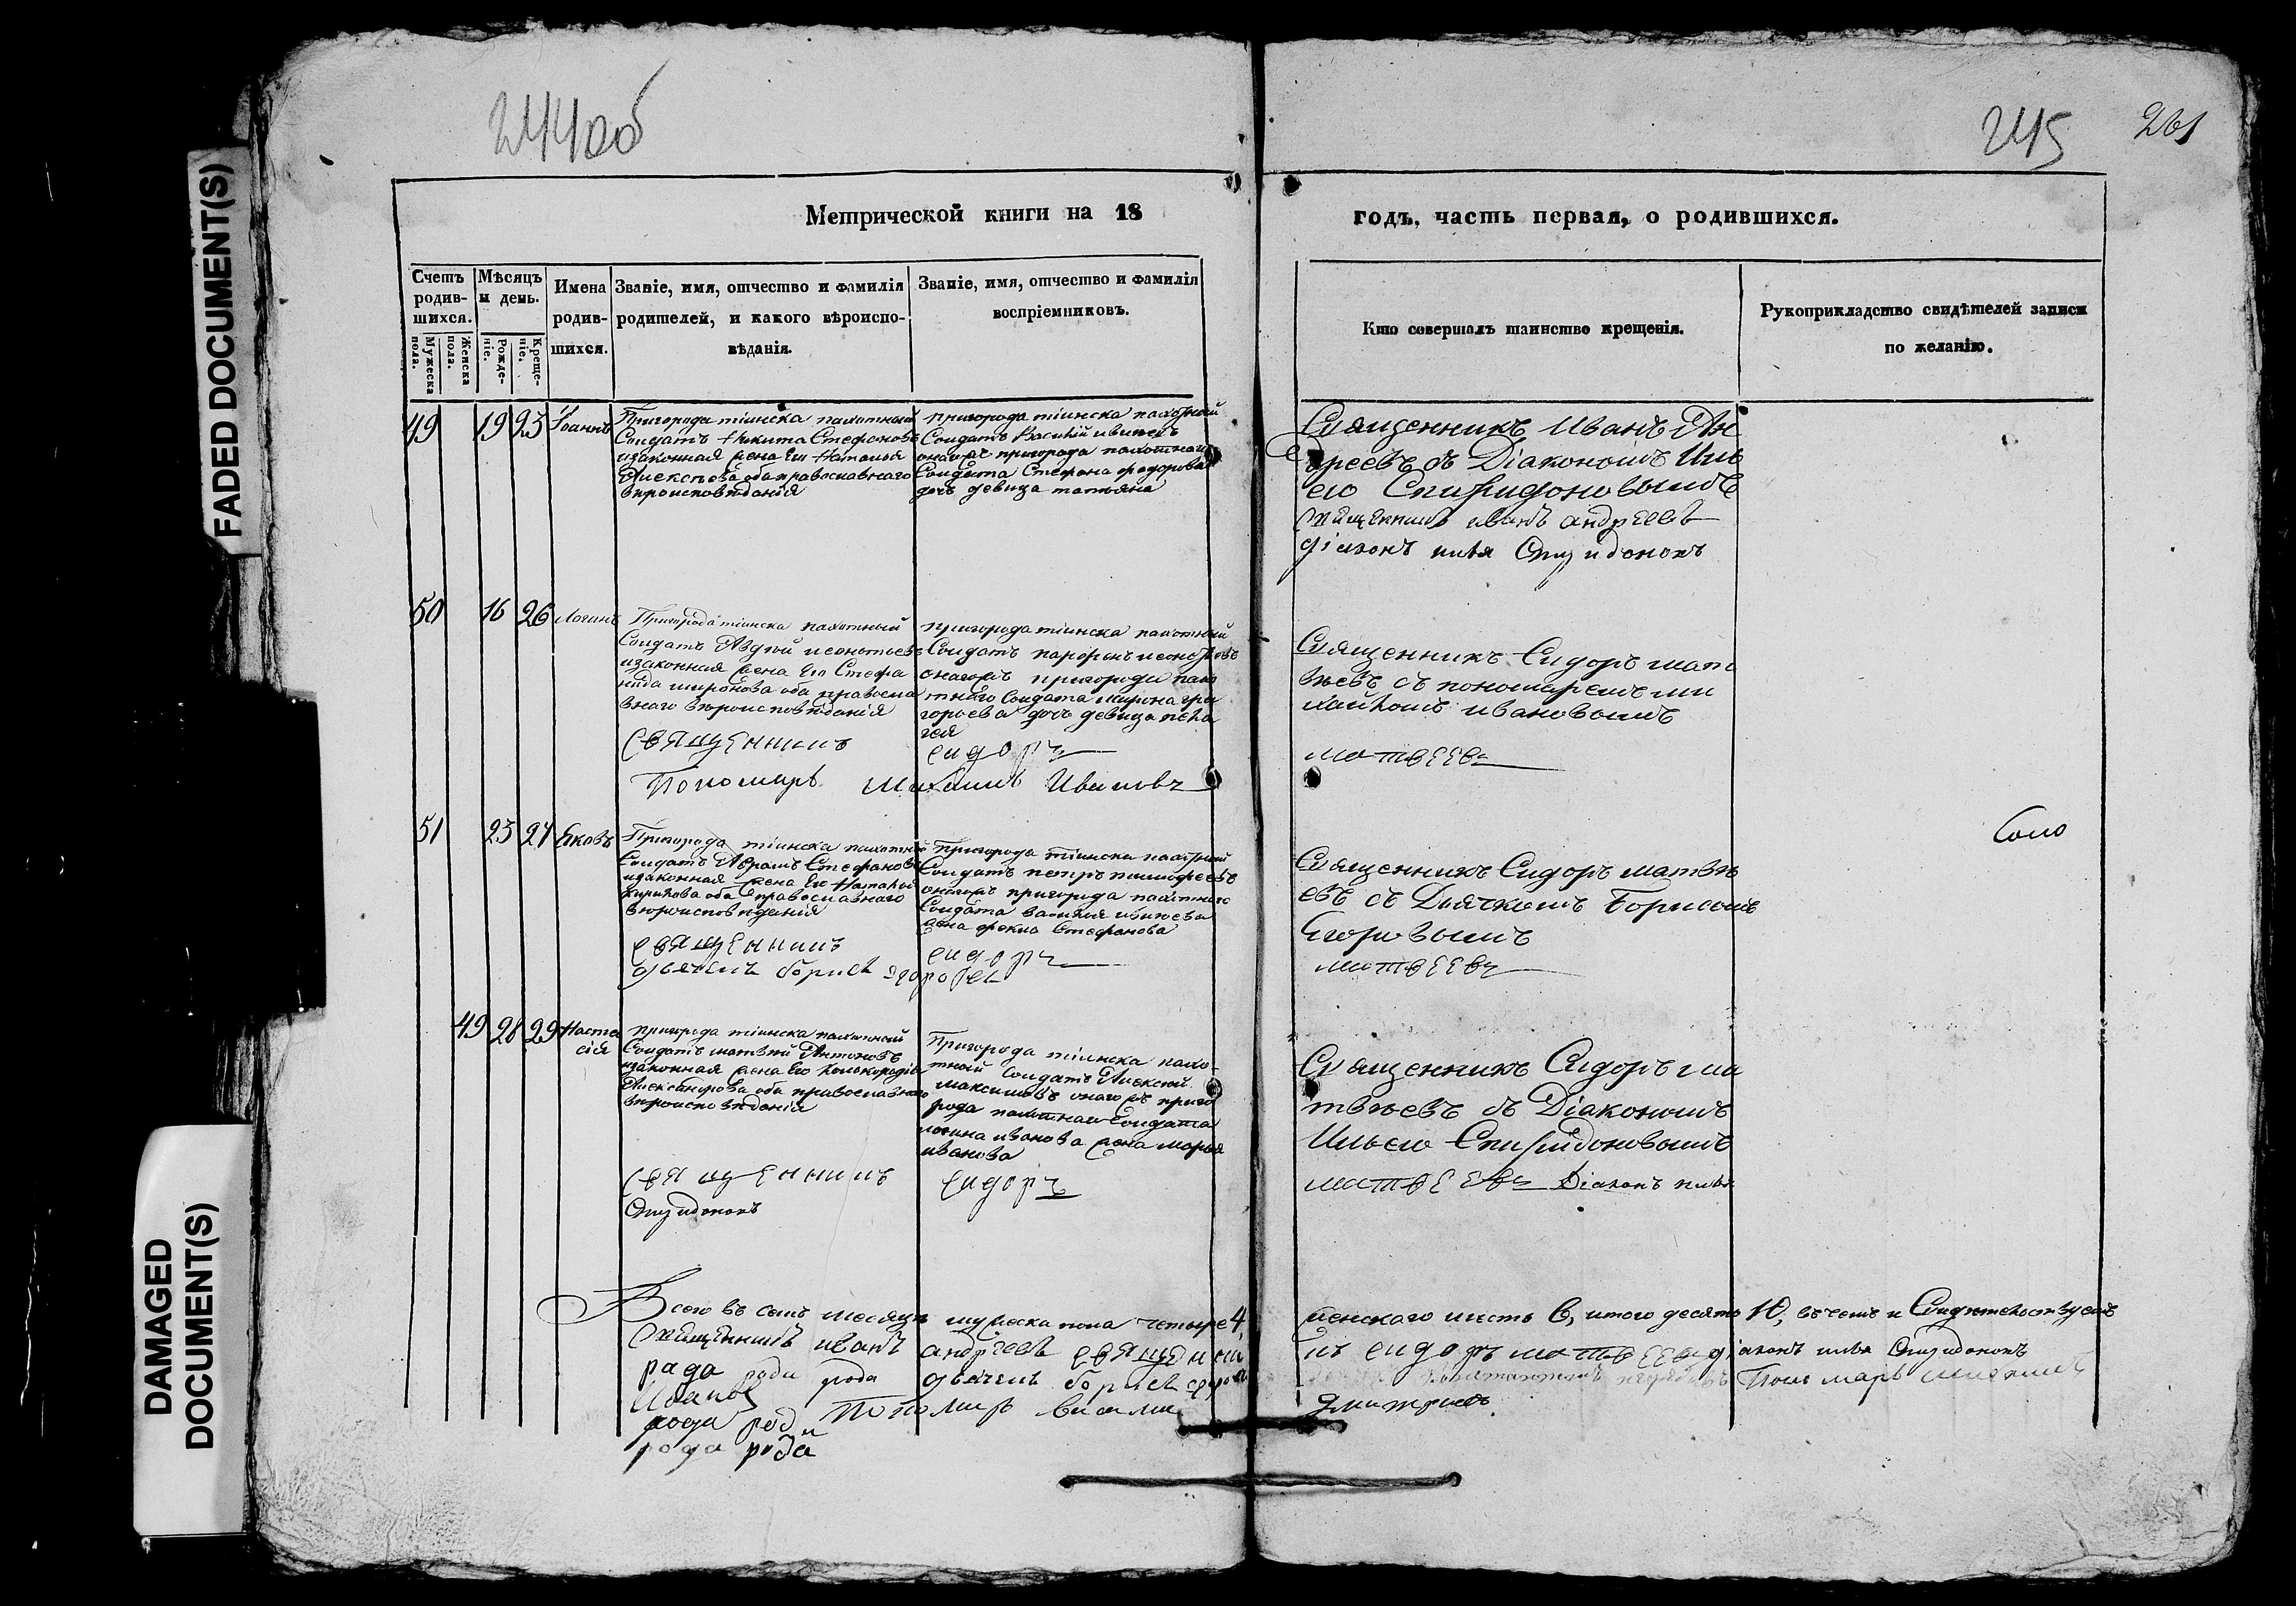 244об
245 261
FADED DOCUMENT(S)
DAMAGED
DOCUMENT(S)
Метрической книги на 18
годъ, часть первая, о родившихся.
Счетъ
родив-
шихся.
Мужеска
пола.
Женска
пола.
Мѣсяцъ
и день.
Рожде-
ніе.
Креще-
ніе.
Имена
родив-
шихся.
Званіе, имя, отчество и фамилія
родителей, и какого вѣроиспо-
вѣданія.
Званіе, имя, отчество и фамилія
воспріемниковъ.
Кто совершалъ таинство крещенія.
Рукоприкладство свидѣтелей записи
по желанію.
49 19 23 Іоаннъ
Пригорода тіинска пахотный
Солдатъ Никита Стефановъ
изаконная жена Его Наталья
Алексѣева оба православнаго
вѣроисповѣданія
пригорода тіинска пахотный
Солдатъ Василій
онагожъ пригорода пахотнаго
Солдата Стефана федорова
дочь девица татьяна
Священникъ Иванъ Ан
дреевъ съ Діакономъ Иль
ею Спиридоновымъ
Священникъ иванъ андреевъ
діаконъ илья Спиридоновъ
50 16 26 Логинъ
Пригорода тіинска пахотный
Солдатъ Авдѣй леонтьевъ
изаконная жена Его Стефа
нида миронова оба правосла
внаго вѣроисповѣданія
пригорода тіинска пахотный
Солдатъ парфенъ леонтьевъ
онагожъ пригорода пахо
тнаго Солдата мирона гри
горьева дочь девица пела
гея
Священникъ Сидоръ мат
вѣевъ съ пономаремъ ми
хайломъ ивановымъ
священникъ сидоръ матвеевъ
Пономарь Михаилъ Ивановъ
51 23 27 Яковъ
Пригорода тіинска пахотный
Солдатъ Абрамъ Стефановъ
изаконная жена Его Наталья
Кирилова оба православнаго
вѣроисповѣданія
Пригорода тіинска пахотный
Солдатъ петръ тимофеевъ
онагожъ пригорода пахотнаго
Солдата василья
жена фекла Стефанова
Священникъ Сидоръ матвѣ
евъ съ Дьячкомъ Борисомъ
Егоровымъ
священникъ сидоръ матвеевъ
дьячекъ борисъ
49 28 29 Наста
сія
пригорода тіинска пахотный
Солдатъ матвѣй Антоновъ
изаконная жена Его
Александрова оба православнаго
вѣроисповѣданія
Пригорода тіинска пахо
тный Солдатъ Алексѣй
максимовъ онагожъ приго
рода пахотнаго Солдата
логина иванова жена марья
иванова
Священникъ Сидоръ ма
твѣевъ съ Діакономъ
Ильею Спиридоновымъ
священникъ сидоръ матвеевъ Діаконъ илья
Спиридоновъ
Всего въ семъ месяцѣ мужеска пола четыре 4, женскаго шесть 6, итого десять 10, въ чемъ и Свидѣтельствуемъ
Священникъ иванъ андреевъ священникъ сидоръ матвеевъ діаконъ илья Спиридоновъ
рада роди рода дьячекъ борисъ
Пономарь михаилъ
Ивановъ
рода род Пономарь васили дмитриевъ
рода рода